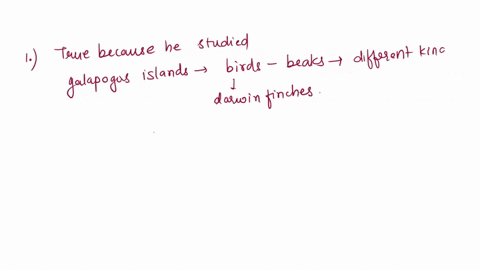 1.) True because he studied
galapogus islands → birds - beaks → different kinc
↓
darwin finches.